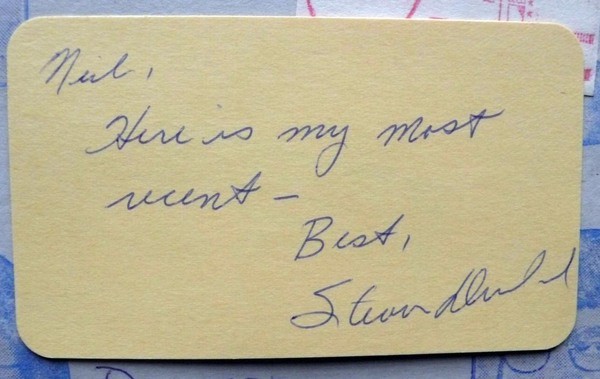 Neil,
Here is my most
recent —
Best,
Steven